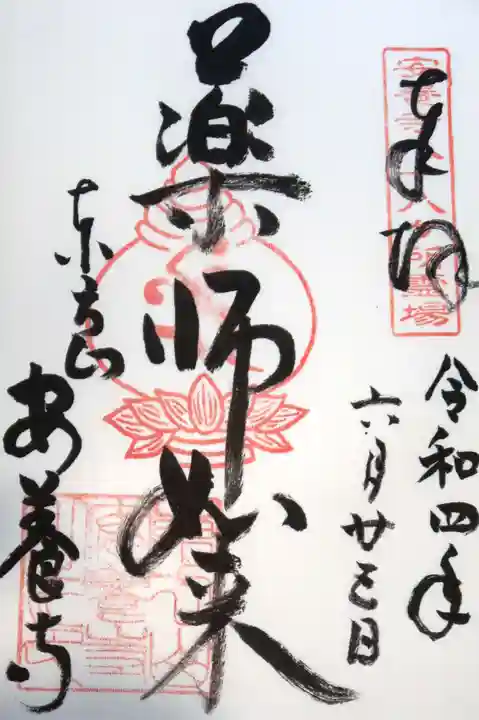 奉拝
令和四年
六月廿日
薬師如来
東方山
安養寺
霊場